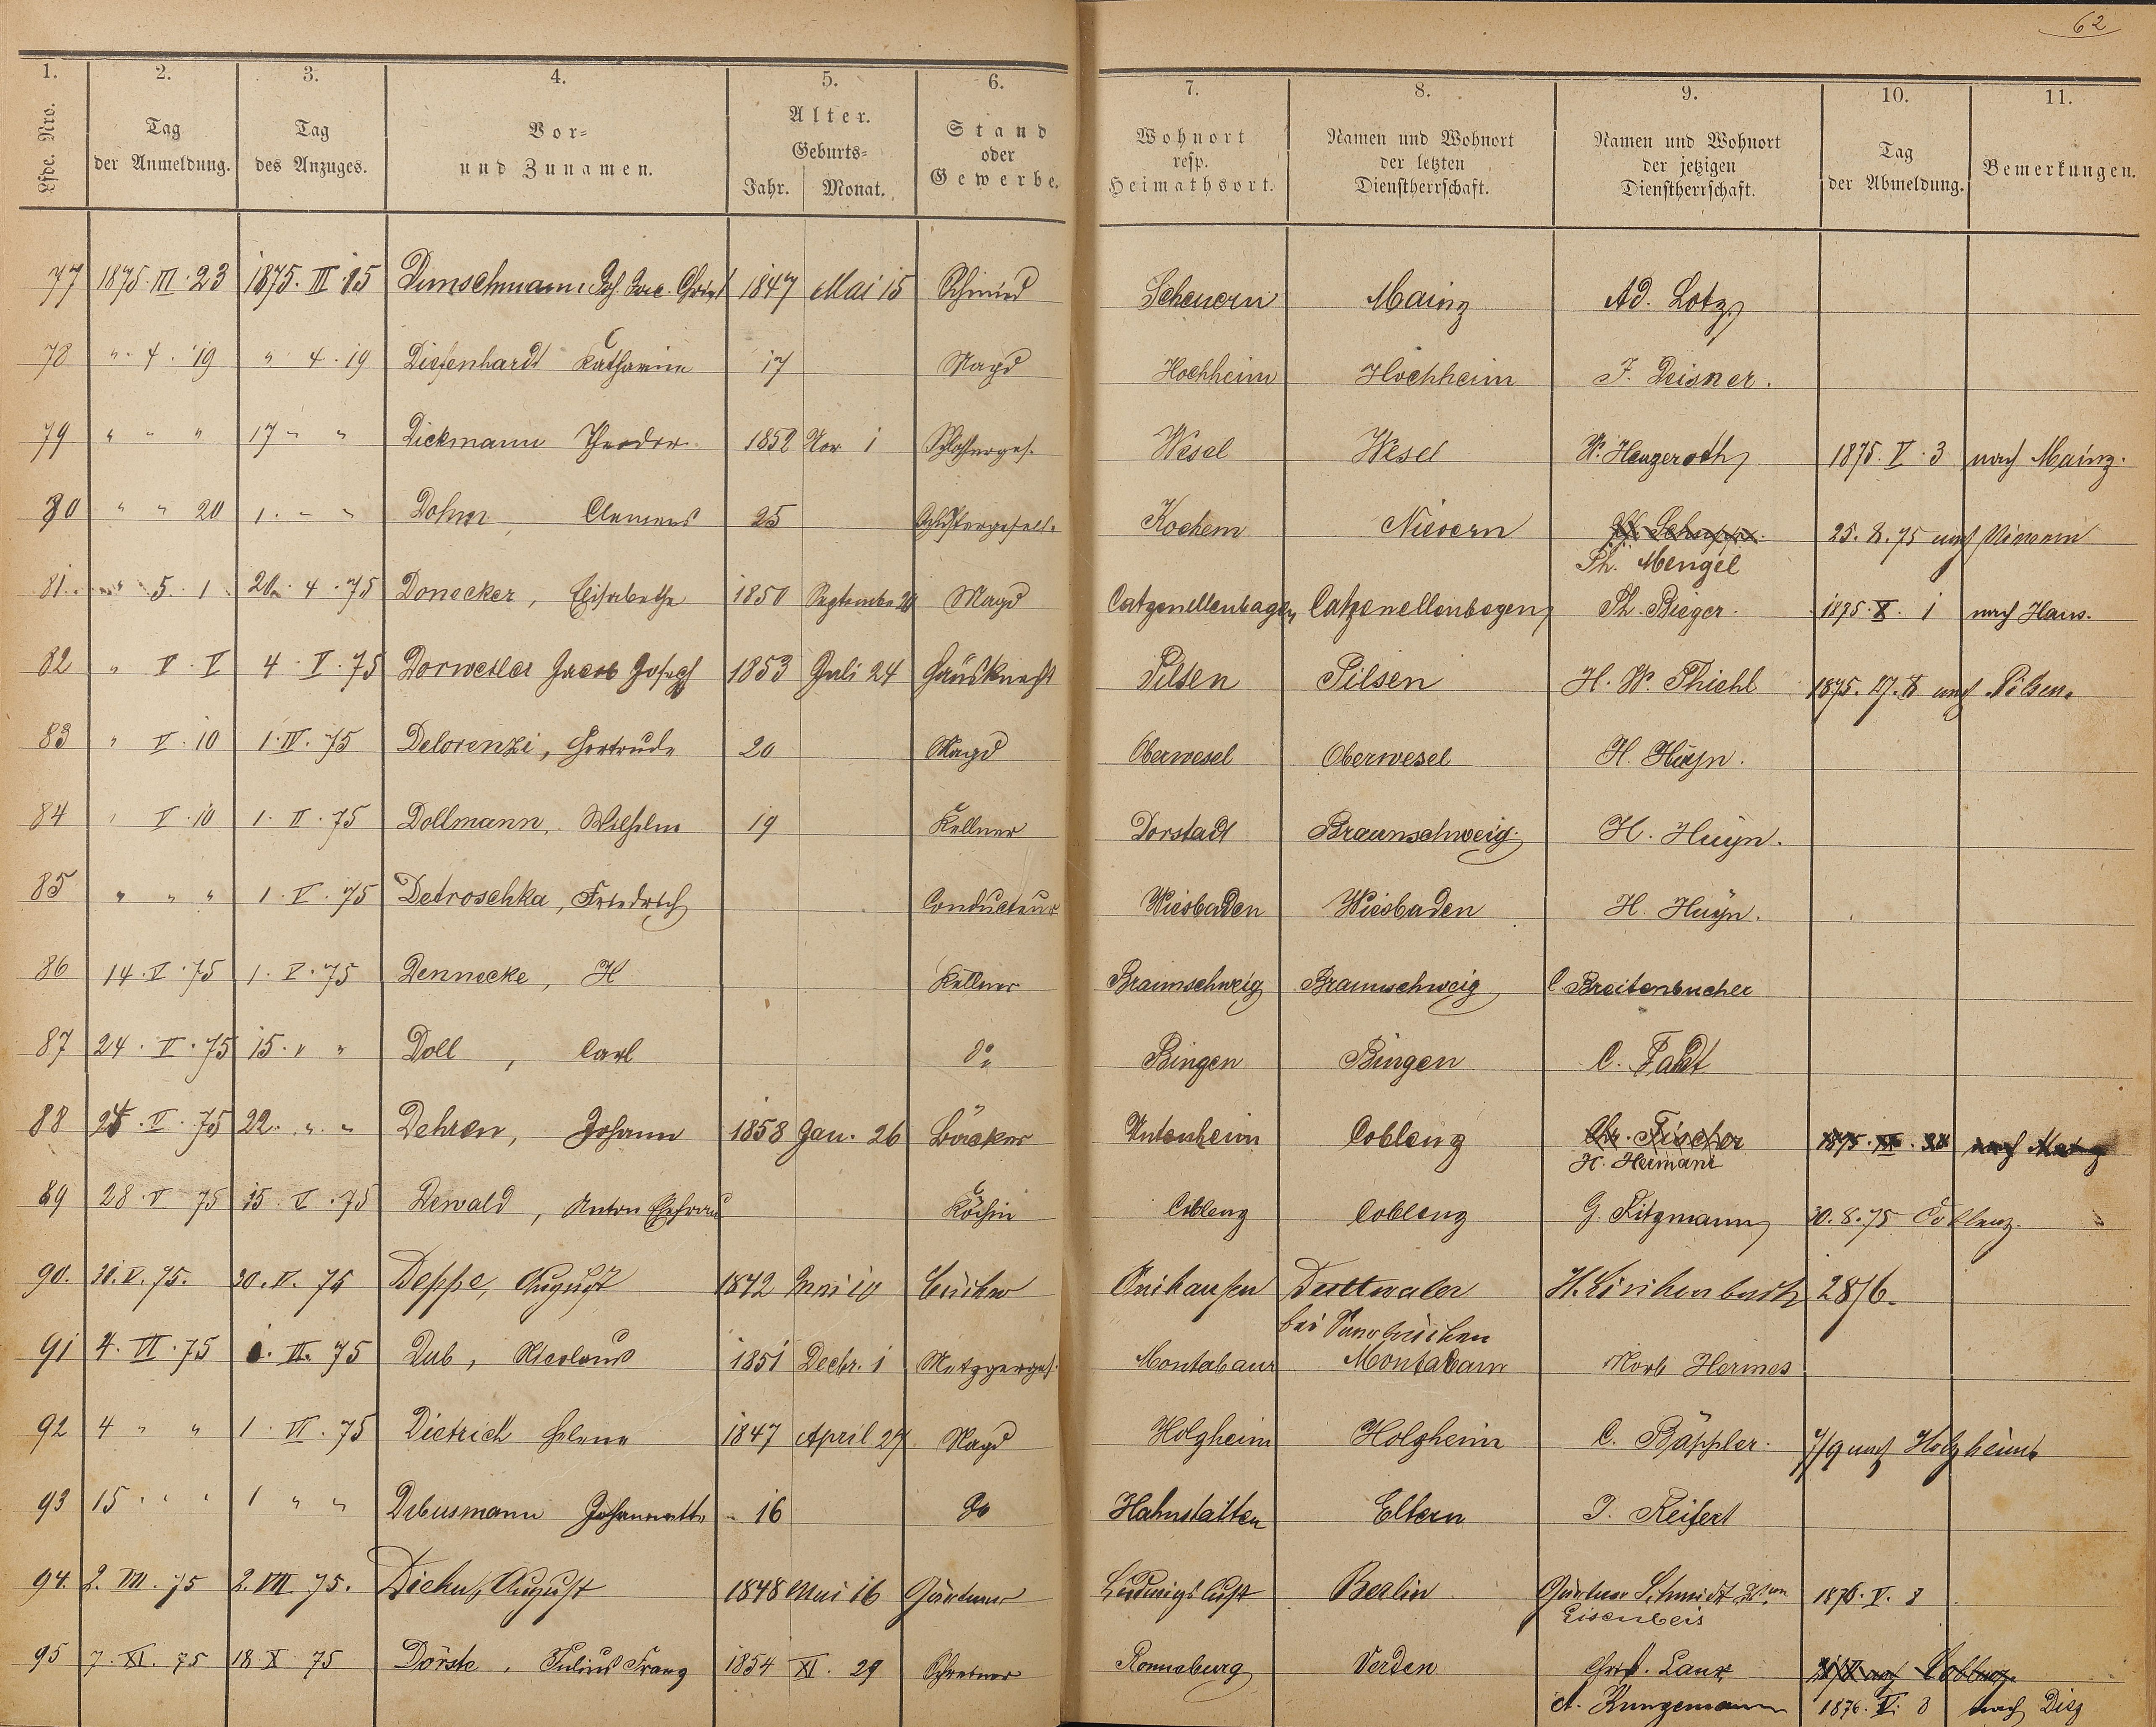 62
1. 2. 3. 4. 5. 6. 7. 8. 9. 10. 11.
Lfde. Nro. | Tag der Anmeldung. | Tag des Anzuges. | Vor- und Zunamen. | Alter. Geburts- Jahr. Monat. | Stand oder Gewerbe. | Wohnort resp. Heimathsort. | Namen und Wohnort der letzten Dienstherrschaft. | Namen und Wohnort der jetzigen Dienstherrschaft. | Tag der Abmeldung. | Bemerkungen.
77 1875. III. 23 1875. III. 15 1847 Mai 15 Schmied Scheuern Mainz Ad. Lotz
78 " 4. 19 " 4. 19 Diefenhardt Katharina 17 Magd Hochheim Hochheim J. Deisner.
79 " " " 17 " " Dickmann Theodor 1852 Nov 1 Schlosserges. Wesel Wesel W. Henzeroth 1875. V. 3 nach Mainz.
80 " " 20 1. " " Dohm, Clemens 25 Kochem Nievern 25. 8. 75 nach Nievern
Ph. Mengel
81. " 5. 1 20. 4. 75 Donecker, Elisabethe 1850 September Magd Catzenellenbogen Catzenellenbogen Ph. Bieger. 1875. X. 1 nach Haus.
82 " V. V 4. V. 75 Dorweiler Jacob Joseph 1853 Juli 24 Hausknecht Pilsen Pilsen H. W. Thiehl nach Pilsen.
83 " V. 10 1. IV. 75 Delorenzi, Gertrude 20 Magd Oberwesel Oberwesel H. Huyn.
84 " V. 10 1. II. 75 Dollmann, Wilhelm 19 Kellner Dorstadt Braunschweig. H. Huyn.
85 " " " 1. V. 75 Detroschka, Friedrich Conducteur Wiesbaden Wiesbaden H. Huyn.
86 14. V. 75 1. V. 75 Dennecke, H Kellner Braunschweig Braunschweig C. Breitenbucher
87 24. V. 75 15. " " Doll, Carl do Bingen Bingen C.
88 24. V. 75 22. " " Dehren, Johann 1858 Jan. 26 Bäcker Coblenz Chr. Fischer nach Mainz
H. Hermani
89 28. V 75 15. V. 75 Dewald, Anton Ehefrau Köchin Coblenz Coblenz G. Litzmann 30. 8. 75 Coblenz.
90. 31. V. 75. 30. V. 75 Deppe, August 1842 Mai 10 H. 28/6.
bei
91 4. VI. 75 Dub, Nicolaus 1851 Decbr. 1 Metzgerges. Montabaur Montabaur Hermes
92 4 " " 1. VI. 75 Dietrich Helene 1847 April 27 Magd Holzheim Holzheim C. Bäppler. 7/9 nach Holzheim
93 15 " " " 1 " " Debusmann Johannette 16 do Hahnstätten Eltern J. Reifert
94. 2. VII. 75 2. VII. 75. Diehn, August 1848 Mai 16 Gärtner Ludwigslust Berlin Gärtner Schmidt 1876. V. 8
Eisenbeis
95 7. XI. 75 18. X 75 Dörste, Julius Franz 1854 XI. 29 Schreiner Ronneburg Verden Christ. Laux nach Coblenz.
A. Kungemann 1876. V. 8 nach Diez